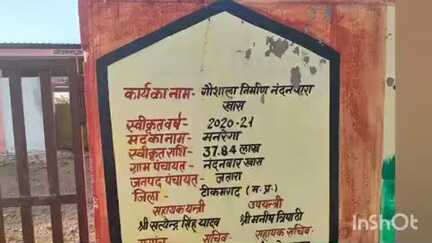 कार्य का नाम - गौशाला निर्माण नंदनवारा
खास
स्वीकृत वर्ष - 2020-21
मद का नाम - मनरेगा
स्वीकृत राशि - 37.84 लाख
ग्राम पंचायत - नंदनवार खास
जनपद पंचायत - जतारा
जिला - टीकमगढ़ (म.प्र.)
सहायक यन्त्री उपयन्त्री
श्री सत्येन्द्र सिंह यादव श्री मनीष त्रिपाठी
सचिव- सहायक सचिव-
InShOt